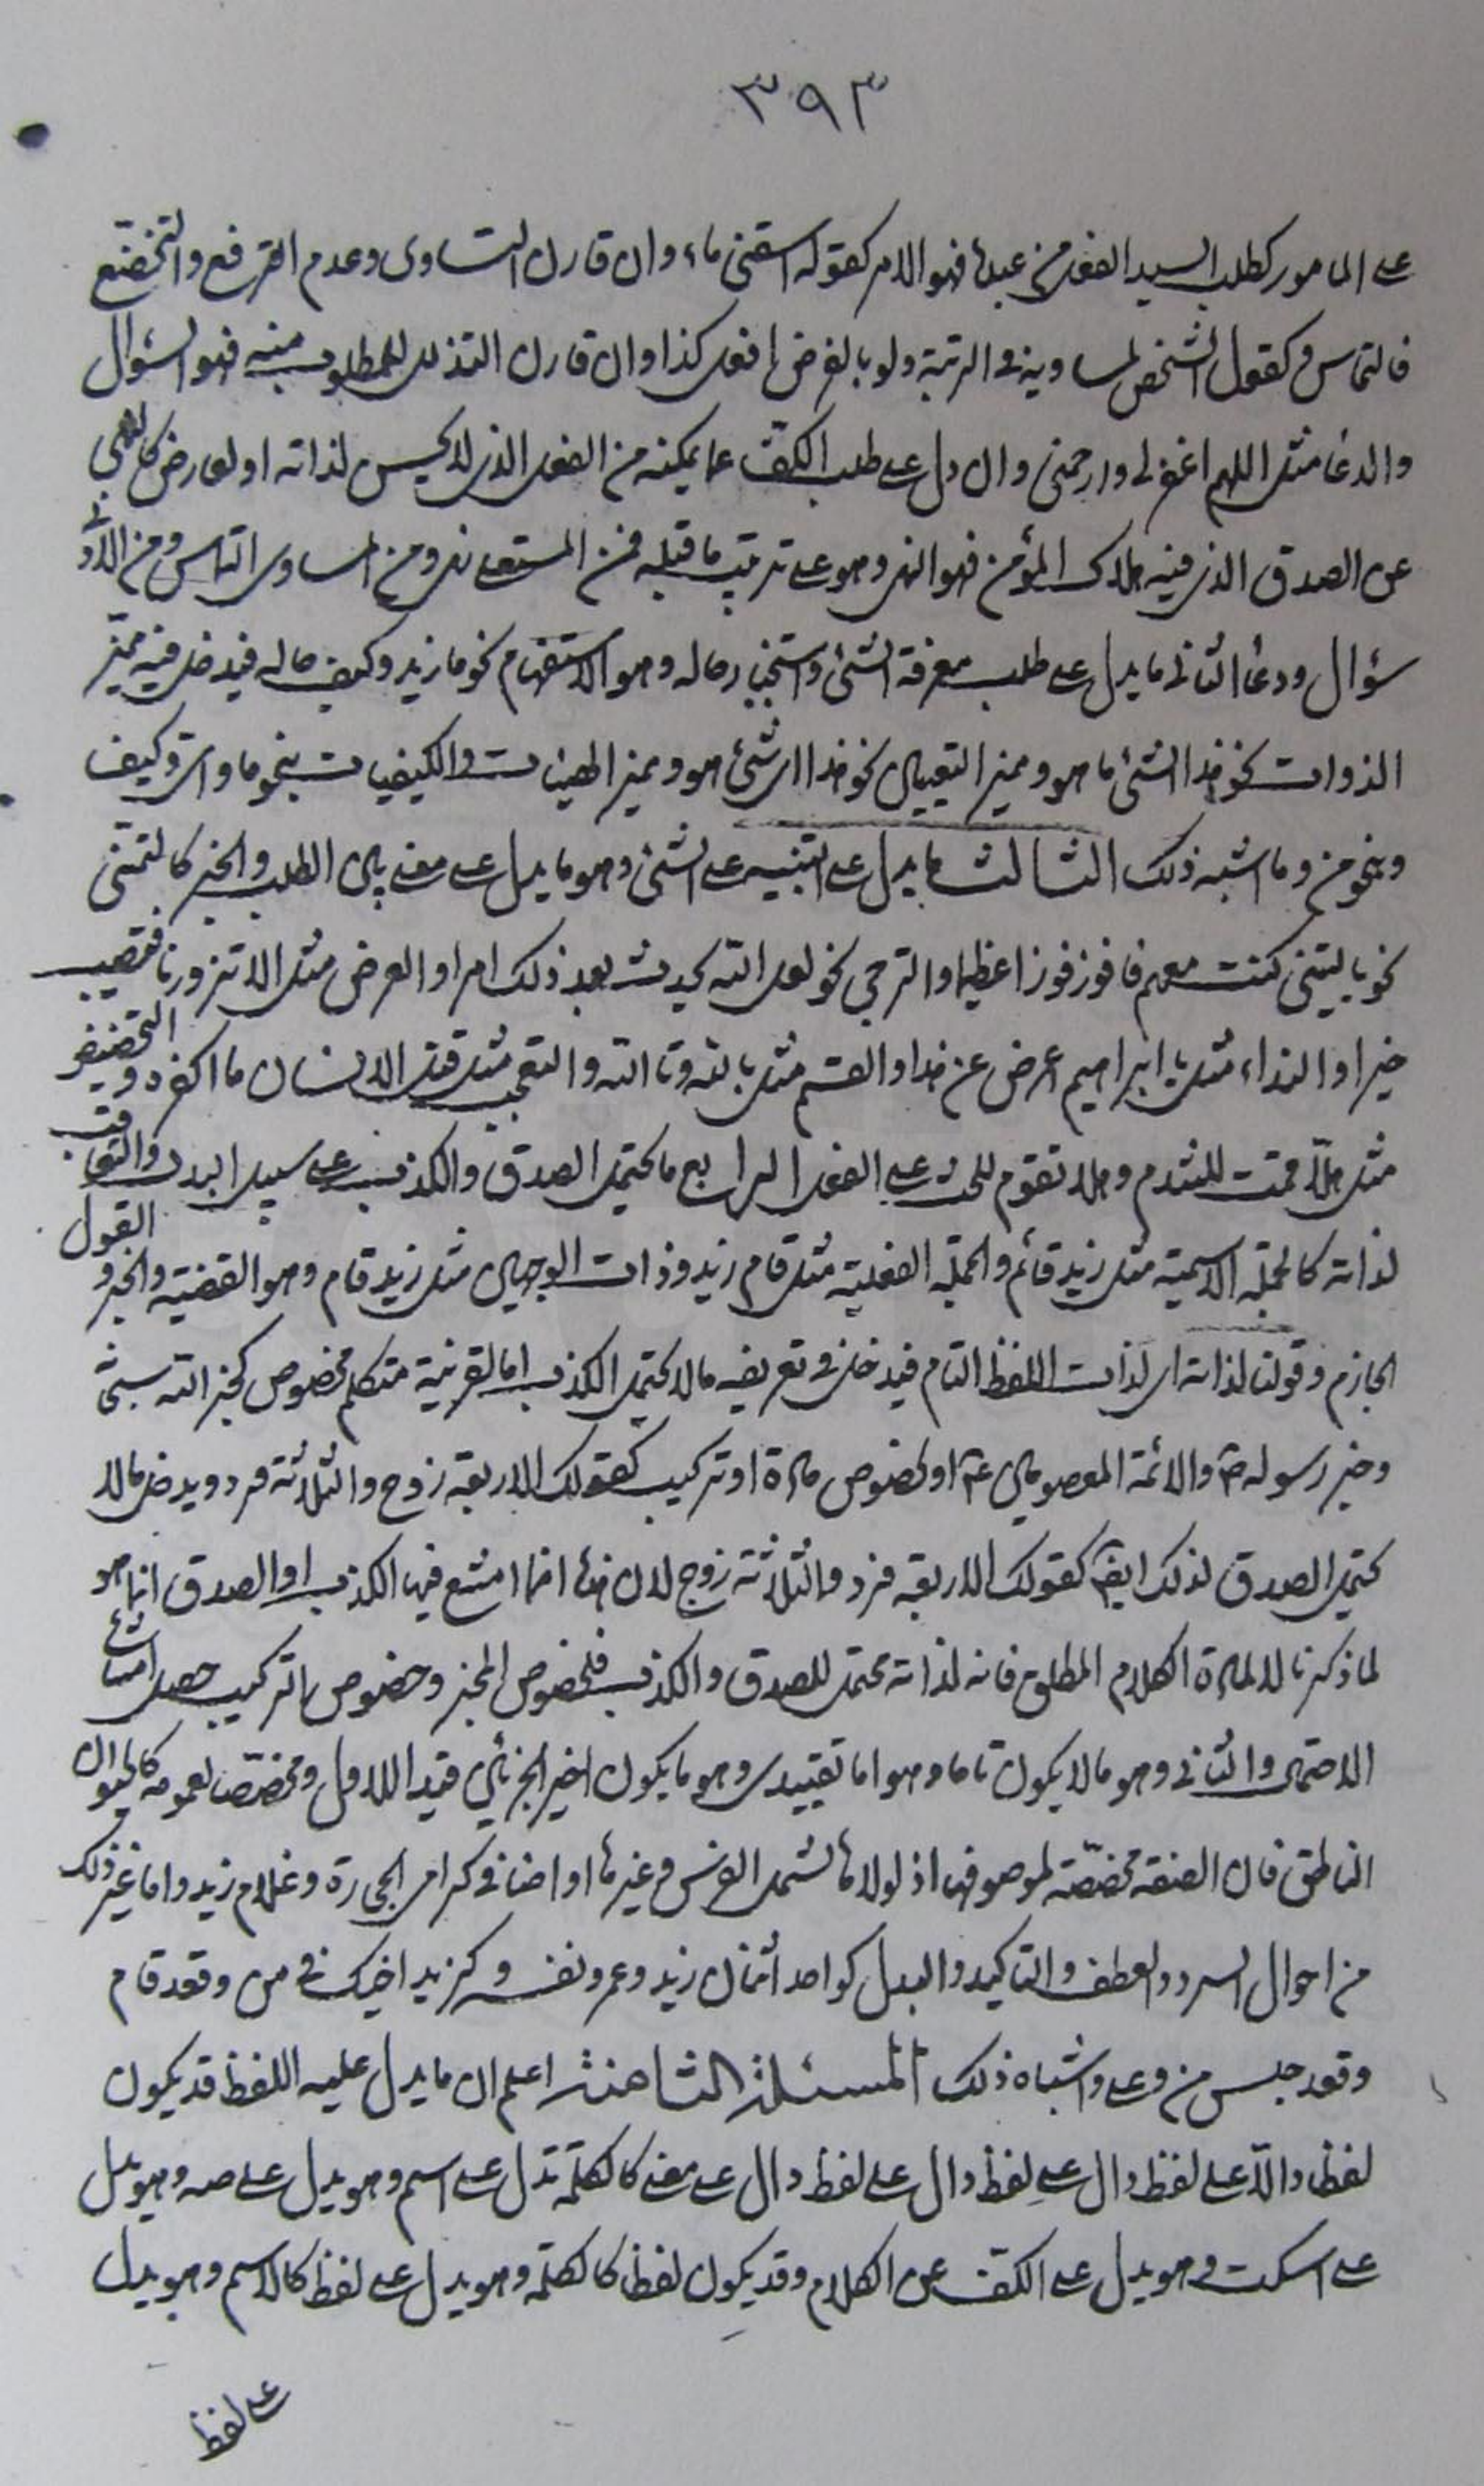 ٣٩٣
على المامور كطلب السيد الفعل من عبده فهو الامر كقوله اسقني ماء وان قارن التساوى وعدم الترفع والتخضّع
فالتماس وكقول الشخص لمساويه في الرتبة ولو بالفرض افعل كذا وان قارن التذلل للمطلوب منه فهو السؤال
والدعا مثل اللهم اغفر لي وارحمني وان دل على طلب الكفّ عما يمكنه من الفعل الذي لا يحسن لذاته او لعارض كالنهي
عن الصدق الذي فيه هلاك المؤمن فهو النهي وهو على ترتيب ما قبله فمن المستعلى نهى ومن المساوى التماس ومن الأدنى
سؤال ودعا الثاني ما يدل على طلب معرفة الشئ واستخبار حاله وهو الاستفهام نحو ما زيد وكيف حاله فيدخل فيه مميّز
الذوات نحو هذا الشئ ما هو ومميز التعيين نحو هذا اى شئ هو ومميز الهيئات والكيفيات بنحو ما واى وكيف
وبنحو من وما اشبه ذلك الثالث ما يدل على التنبيه على الشئ وهو ما يدل على معنى بين الطلب والخبر كالتمنّي
نحو يا ليتني كنت معهم فافوز فوزا عظيما والترجي نحو لعل الله يحدث بعد ذلك امرا والعرض مثل الا تزورنا فتصيب
خيرا والنداء مثل يا ابراهيم اعرض عن هذا والقسم مثل بالله وتالله والتعجب مثل قتل الانسان ما اكفره والتحضيض
مثل هلّا قمت للندم وهلا تقوم للحث على الفعل الرابع ما يحتمل الصدق والكذب على سبيل البدل والتعاقب
لذاته كالجملة الاسمية مثل زيد قائم والجملة الفعلية مثل قام زيد وذات الوجهين مثل زيد قام وهو القضية والخبر والقول
الجازم وقولنا لذاته اى لذات اللفظ التام فيدخل في تعريفه ما لا يحتمل الكذب اما لقرينة متكلم مخصوص كخبر الله سبحانه
وخبر رسوله ص والائمة المعصومين ع او لخصوص مادة او تركيب كقولك الاربعة زوج والثلاثة فرد ويدخل ما لا
يحتمل الصدق لذلك ايضا كقولك الاربعة فرد والثلاثة زوج لان هذا انما امتنع فيها الكذب او الصدق انما هو
لما ذكرنا لا لمادة الكلام المطلق فانه لذاته محتمل للصدق والكذب فلخصوص المخبر وخصوص التركيب حصل امتناع
الاحتمال والثاني وهو ما لا يكون تاما وهو اما تقييدى وهو ما يكون اخير الجزئين قيدا للاول ومخصّصا لعمومه كالحيوان
الناطق فان الصفة مخصّصة لموصوفها اذ لولاها لشمل الفرس وغيرها او اضافي كرامى الحجارة وغلام زيد واما غير ذلك
من احوال السرد والعطف والتاكيد والبدل كواحد اثنان زيد وعمرو نفسه وكزيد اخيك في من وقعد قام
وقعد جلس من وعلى واشباه ذلك المسئلة الثامنة اعلم ان ما يدل عليه اللفظ قد يكون
لفظا دالّا على لفظ دال على لفظ دال على لفظ دال على معنى كالكلمة تدل على اسم وهو يدل على صه وهو يدل
على اسكت وهو يدل على الكف عن الكلام وقد يكون لفظا كالكلمة وهو يدل على لفظ كالاسم وهو يدل
على لفظ